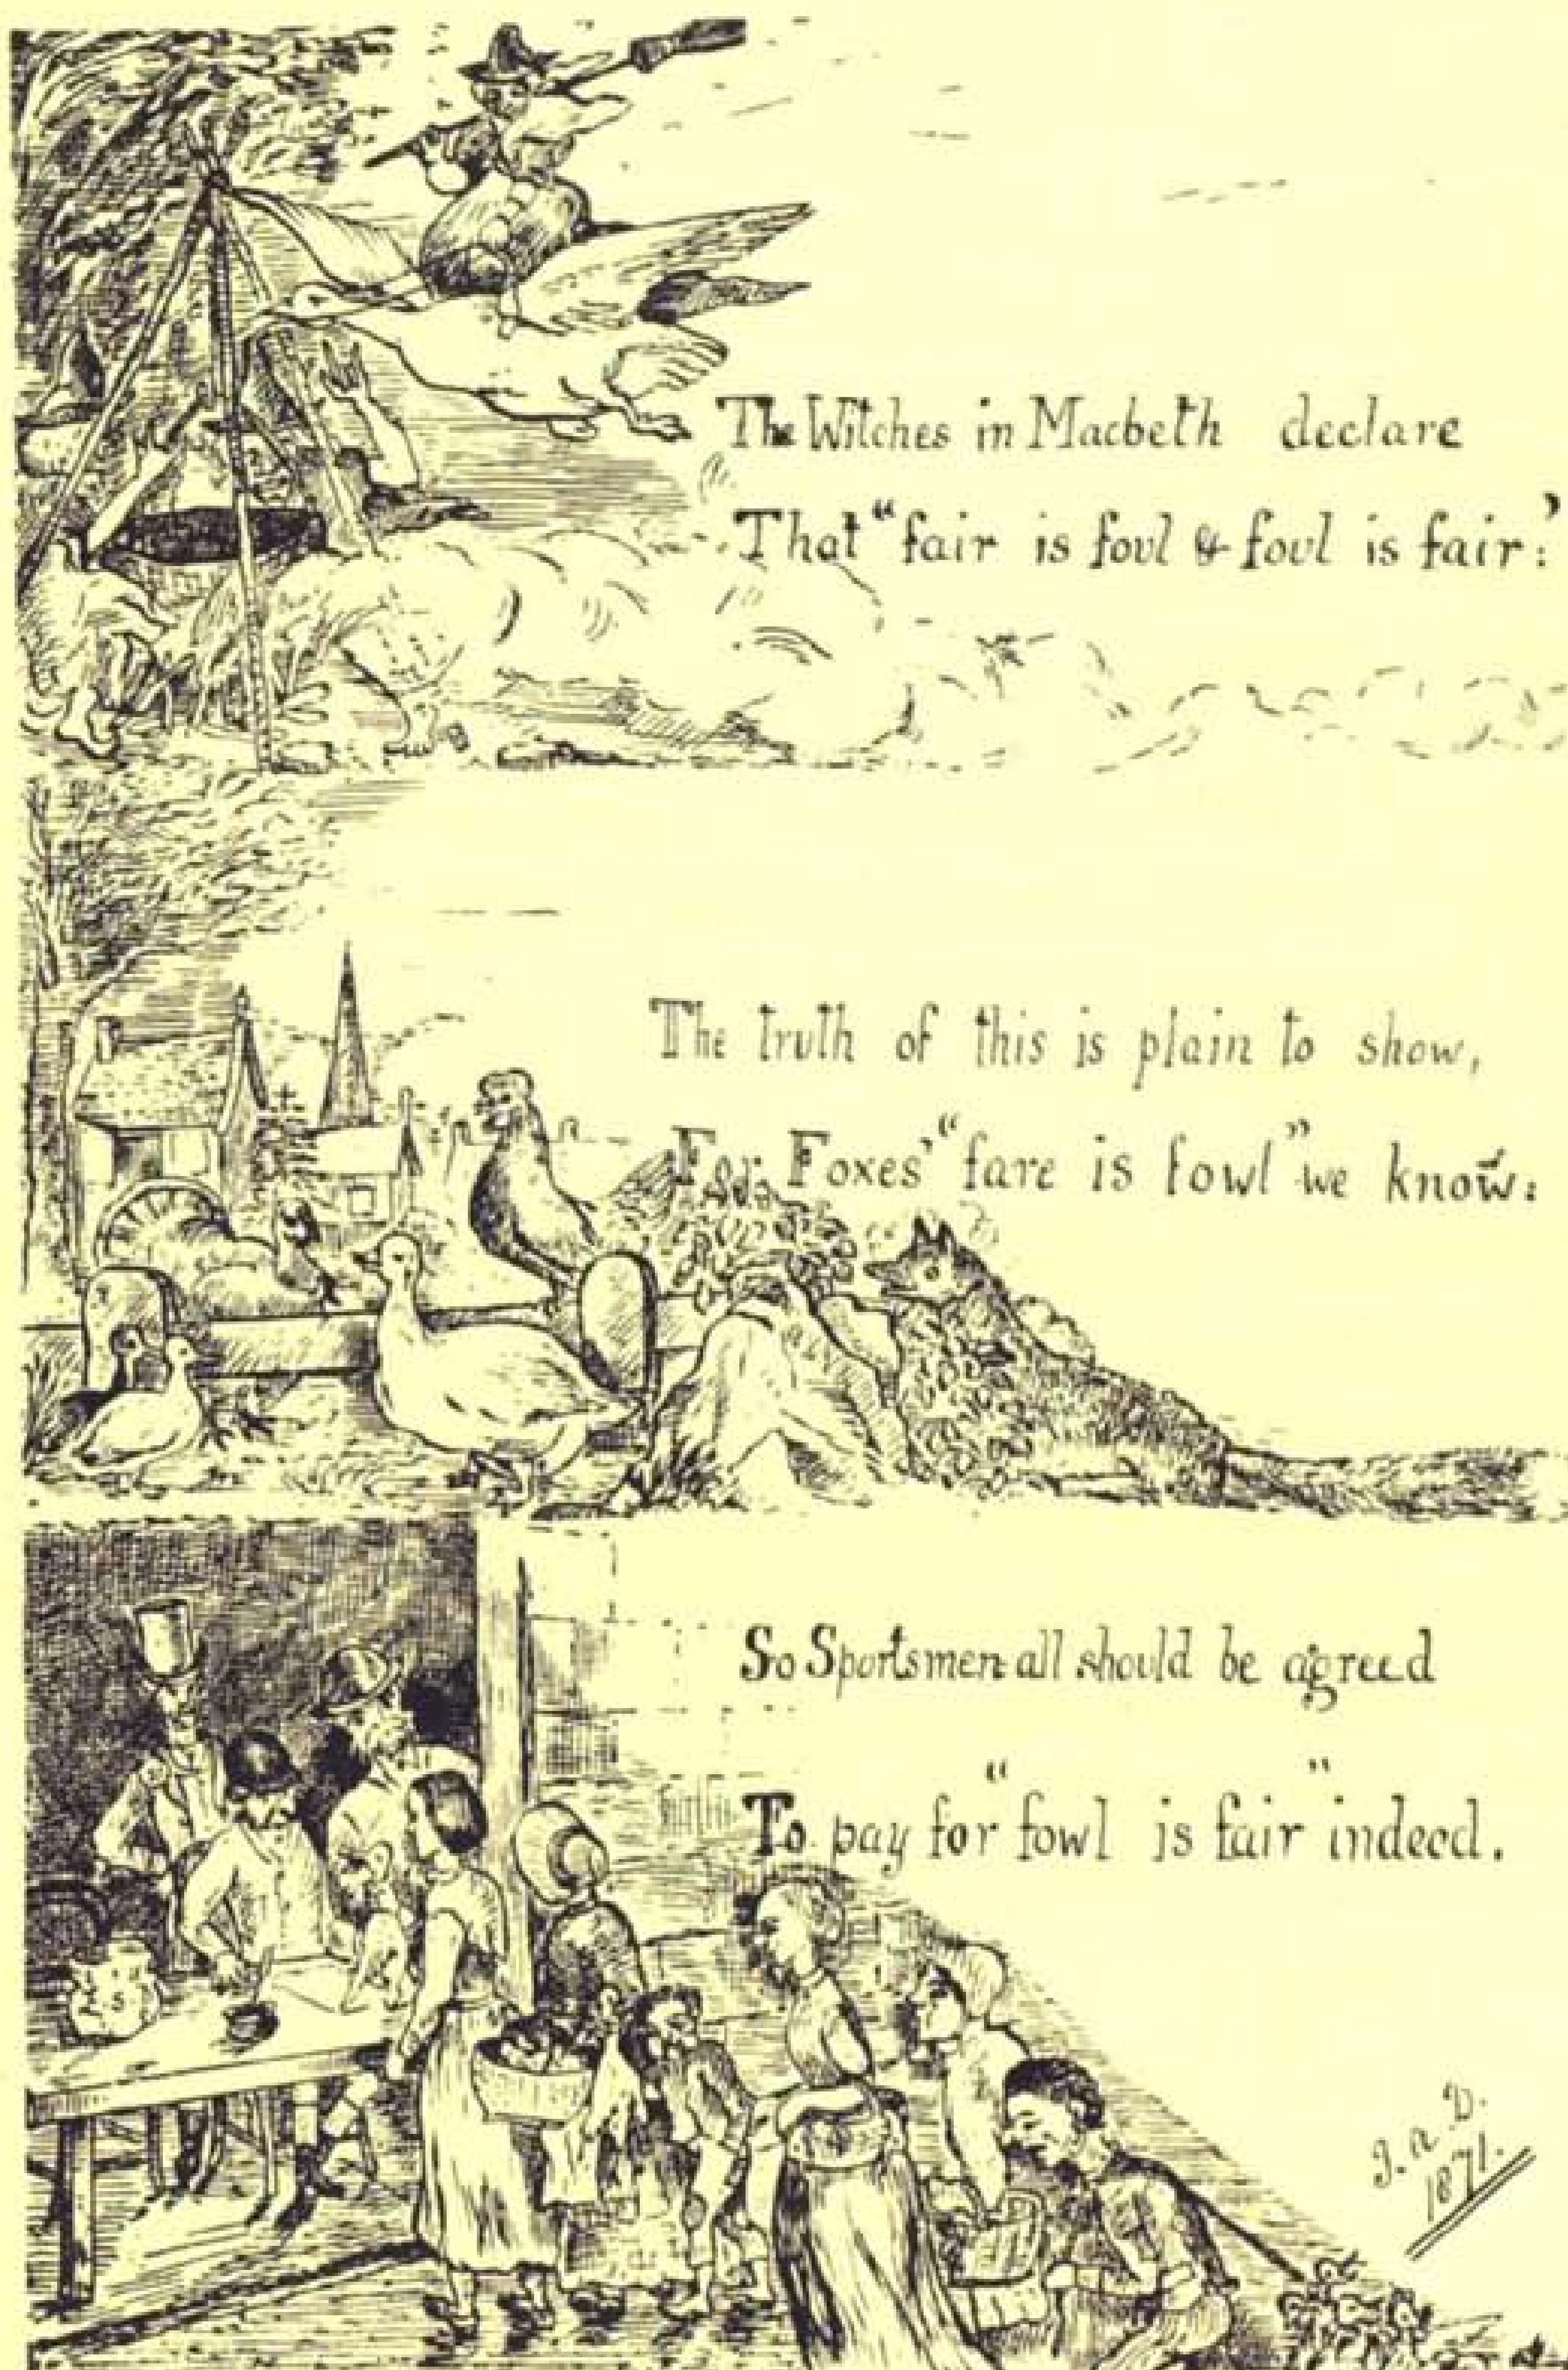 The Witches in Macbeth declare
That "fair is foul & foul is fair:"
The truth of this is plain to show,
For Foxes' "fare is fowl" we know:
So Sportsmen all should be agreed
To pay for "fowl is fair" indeed.
J. A. D.
1871.